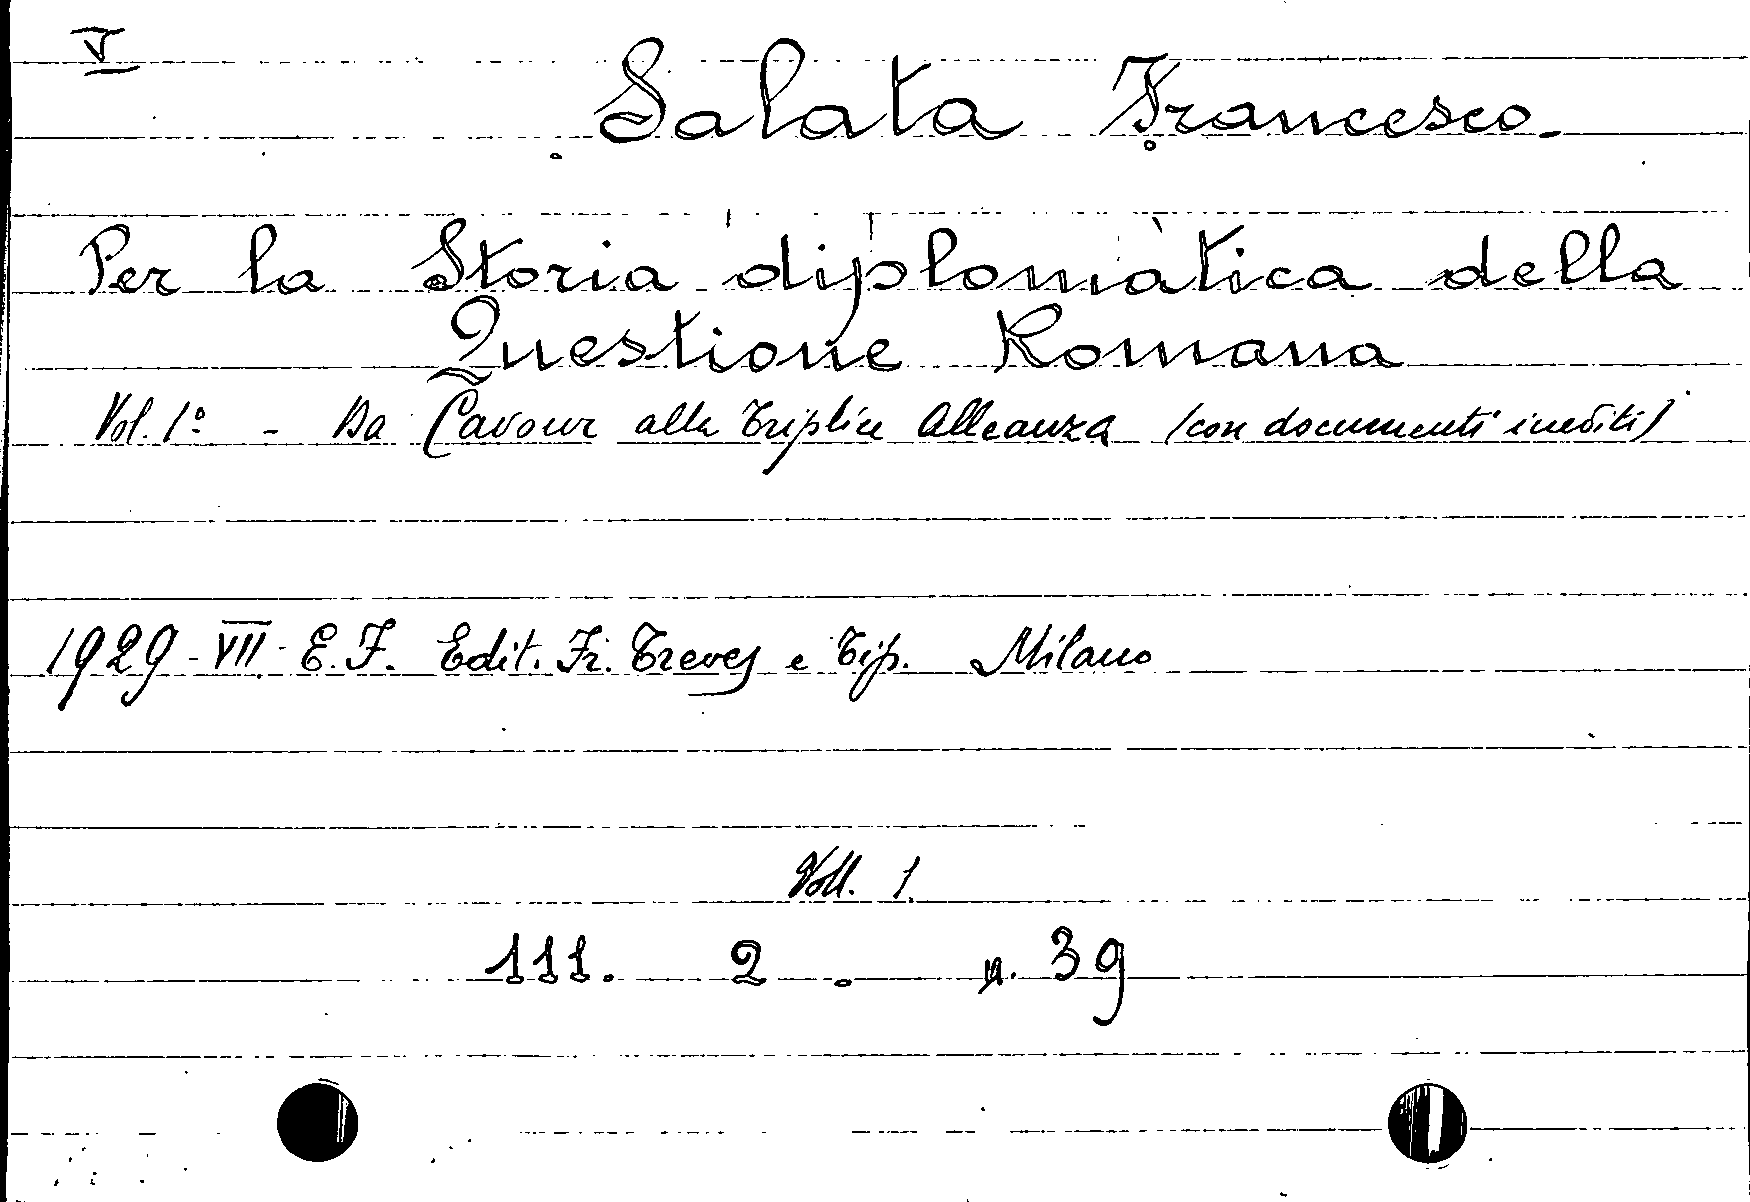 V
Salata Francesco.
Per la Storia diplomatica della
Questione Romana
Vol. 1º - Da Cavour alla Triplice Alleanza (con documenti inediti)
1929 - VII - E. F. Edit. Fr. Treves e Tip. Milano
Voll. 1.
111. 2. n. 39